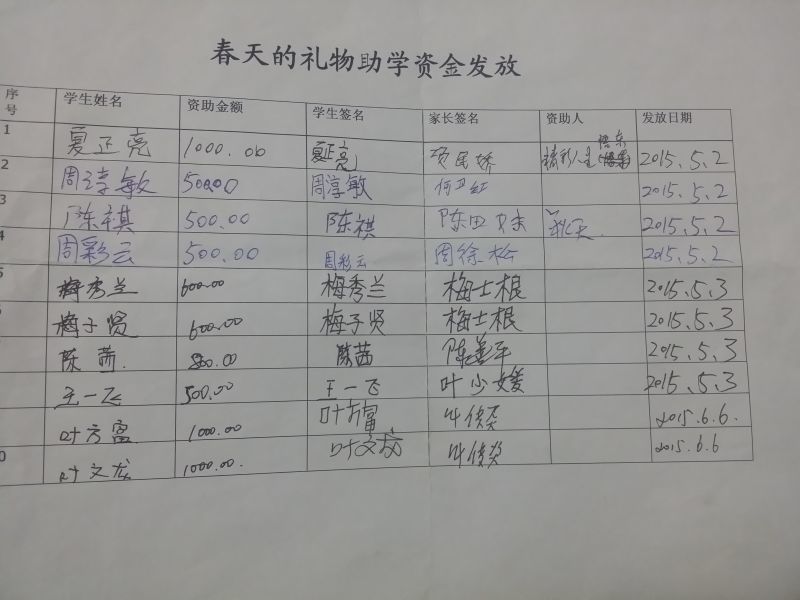 春天的礼物助学资金发放
序号 学生姓名 资助金额 学生签名 家长签名 资助人 发放日期
1 夏正亮 1000.00 夏正亮 2015.5.2
2 周淳敏 500.00 周淳敏 何卫红 2015.5.2
3 陈祺 500.00 陈祺 陈田 秋天 2015.5.2
4 周彩云 500.00 周彩云 周徐松 2015.5.2
5 梅秀兰 600.00 梅秀兰 梅士根 2015.5.3
梅子贤 600.00 梅子贤 梅士根 2015.5.3
陈茜. 800.00 陈茜 陈善平 2015.5.3
王一飞 500.00 王一飞 叶少媛 2015.5.3
叶方富 1000.00 叶方富 叶 2015.6.6.
0 叶文龙 1000.00. 叶文龙 叶 2015.6.6